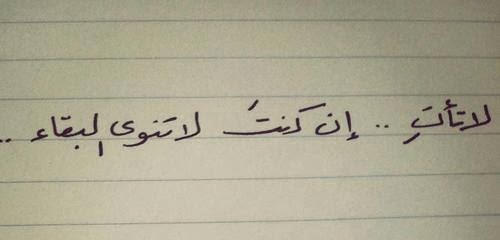 لا تأتِ .. إن كنتَ لا تنوى البقاء ..